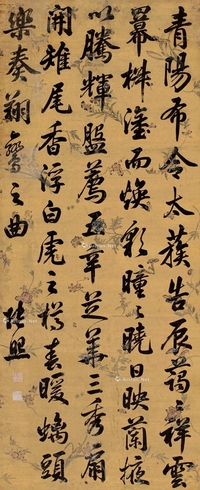 青陽布令太蔟告辰藹〻祥雲
羃椒塗而煥彩曈〻曉日映蘭掖
以騰輝盤薦五辛芝華三秀扇
開雉尾香浮白虎之樽春暖螭頭
樂奏翔鸞之曲 張照